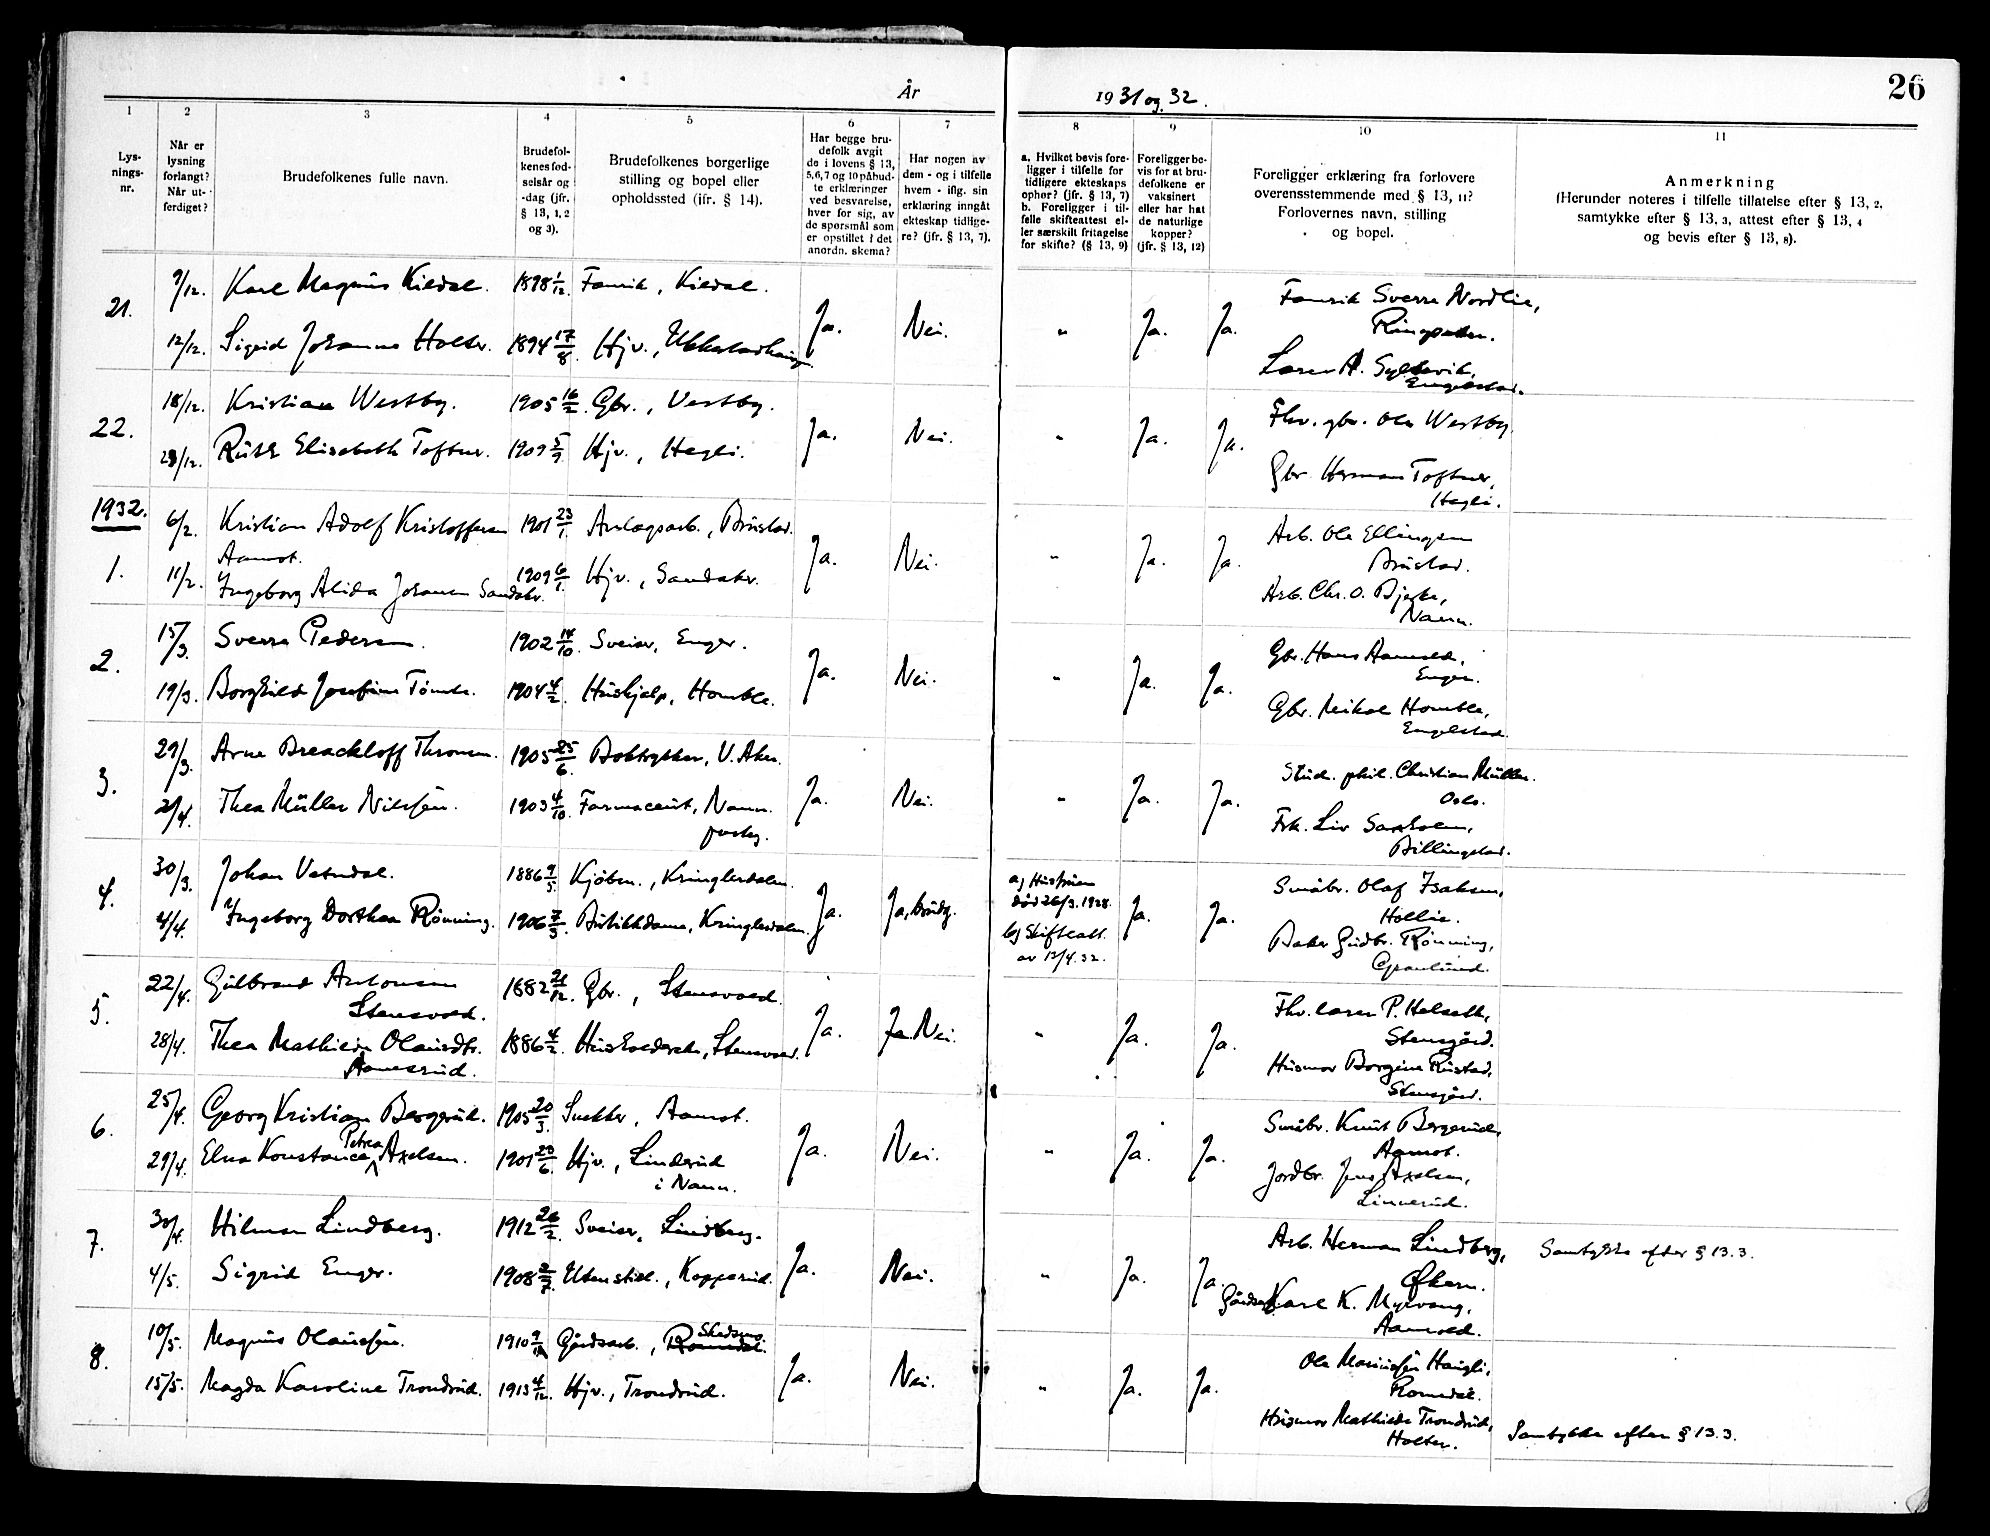 År 1931 og 32.
26
1 2 3 4 5 6 7 8 9 10 11
Lysningsnr.
Når er lysning forlangt? Når utferdiget?
Brudefolkenes fulle navn.
Brudefolkenes fødselsår og -dag (jfr. § 13, 1, 2 og 3).
Brudefolkenes borgerlige stilling og bopel eller opholdssted (jfr. § 14).
Har begge brudefolk avgit de i lovens § 13, 5, 6, 7 og 10 påbudte erklæringer ved besvarelse, hver for sig, av de spørsmål som er opstillet i det anordn. skema?
Har nogen av dem - og i tilfelle hvem - iflg. sin erklæring inngått ekteskap tidligere? (jfr. § 13, 7).
a. Hvilket bevis foreligger i tilfelle for tidligere ekteskaps ophør? (jfr. § 13, 7)
b. Foreligger i tilfelle skifteattest eller særskilt fritagelse for skifte? (§ 13, 9)
Foreligger bevis for at brudefolkene er vaksinert eller har hat de naturlige kopper? (jfr. § 13, 12)
Foreligger erklæring fra forlovere overensstemmende med § 13, 11? Forlovernes navn, stilling og bopel.
Anmerkning
(Herunder noteres i tilfelle tillatelse efter § 13, 2, samtykke efter § 13, 3, attest efter § 13, 4 og bevis efter § 13, 8).
21.
9/12. Karl Magnus Kildal. 1898 1/12 Fanrik, Kildal.
12/12. Sigrid Johanne Holter. 1894 17/8 Hjv.,
Ja. Nei. " Ja. Ja.
Fanrik Sverre Nordlie,
22.
18/12. Kristian Westby. 1905 16/2 Gbr., Vestby.
28/12. Ruth Elisabeth Toftner. 1909 5/9 Hjv., Hegli.
Ja. Nei. " Ja. Ja.
Fhv. gbr. Ole Westby.
Gbr. Herman Toftner,
Hegli.
1932.
1.
6/2. Kristian Adolf Kristoffersen 1901 23/1 Anlagsarb., Brustad.
Aamot.
11/2. Ingeborg Alida Johansen Sandaker. 1909 6/1. Hjv., Sandaker.
Ja. Nei. " Ja. Ja.
Arb. Ole Ellingsen
Brustad.
Arb. Chr. O. Bjerke,
Nann.
2.
15/3. Sverre Pedersen. 1902 14/10 Sveiser, Enger.
19/3. Borghild Josefine Tømte. 1904 4/2. Hushjelp, Homble.
Ja. Nei. " Ja. Ja.
Gbr. Hans Aamold,
Enger.
Gbr. Mikal Homble,
Engelstad.
3.
29/3. Arne Breackloff Thronsen. 1905 25/6. Boktrykker, V. Aker.
2/4. Thea Müller Nilssen. 1903 4/10 Farmaceut, Nann.
Ja. Nei. " Ja. Ja.
Stud. phil. Christian Müller.
Oslo.
Frk. Liv Saxholm,
Billingstad.
4.
30/3. Johan Vatndal. 1886 9/5 Kjøbm., Kringlerdalen.
4/4. Ingeborg Dorthea Rønning. 1906 7/3. Butikkdame, Kringlerdalen.
Ja. Ja, brudg.
a) Hustruen
død 26/3. 1928.
b) Skifteatt.
av 12/4. 32.
Ja. Ja.
Småbr. Olaf Isaksen,
Hollie.
Baker Gudbr. Rønning,
Granlund.
5.
22/4. Gulbrand Antonsen 1882 21/12. Gbr., Stensvold.
Stensvold.
28/4. Thea Mathilde Olausdtr. 1886 4/2. Husholderske, Stensvold.
Aamesrud.
Ja. Ja. Nei. " Ja. Ja.
Fhv. lærer P. Helseth,
Stensgård.
Husmor Borgine Rustad,
Stensgård.
6.
25/4. Georg Kristian Bergerud. 1905 20/3. Snekker, Aamot.
29/4. Elna Konstance Petrea Axelsen. 1901 20/6. Hjv., Linderud
i Nann.
Ja. Nei. " Ja. Ja.
Småbr. Knut Bergerud,
Aamot.
Jordbr. Jens Axelsen,
Linnerud.
7.
30/4. Hilmar Lindberg. 1912 26/2. Sveiser, Lindberg.
4/5. Sigrid Enger. 1908 2/7. Utenstil., Kopperud.
Ja. Nei. " Ja. Ja.
Arb. Herman Lindberg,
Økern.
Karl K. Myrvang,
Aamold.
Samtykke efter § 13.3.
8.
10/5. Magnus Olaussen. 1910 9/ Gårdsarb., Romedal. Skedsmo.
15/5. Magda Karoline Trondrud. 1913 4/12. Hjv., Trondrud.
Ja. Nei. " Ja. Ja.
Ole Mariussen Haugli,
Romedal.
Husmor Mathilde Trondrud,
Holter.
Samtykke efter § 13.3.